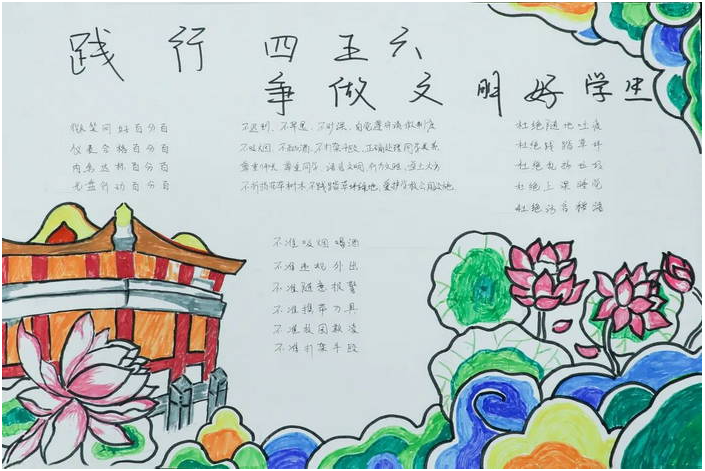 践行 四五六
争做文明好学生
微笑问好百分百
仪表合格百分百
内务达标百分百
光盘行动百分百
不迟到、不早退、不旷课、自觉遵守请假制度
不吸烟、不酗酒、不打架斗殴、正确处理同学关系
尊重师长、尊重同学、语言文明、行为文雅
不折损花草树木不践踏草坪绿地、爱护学校公用设施
杜绝随地吐痰
杜绝践踏草坪
杜绝乱扔垃圾
杜绝上课睡觉
杜绝污言秽语
不准吸烟喝酒
不准违规外出
不准随意报警
不准携带刀具
不准校园欺凌
不准打架手段